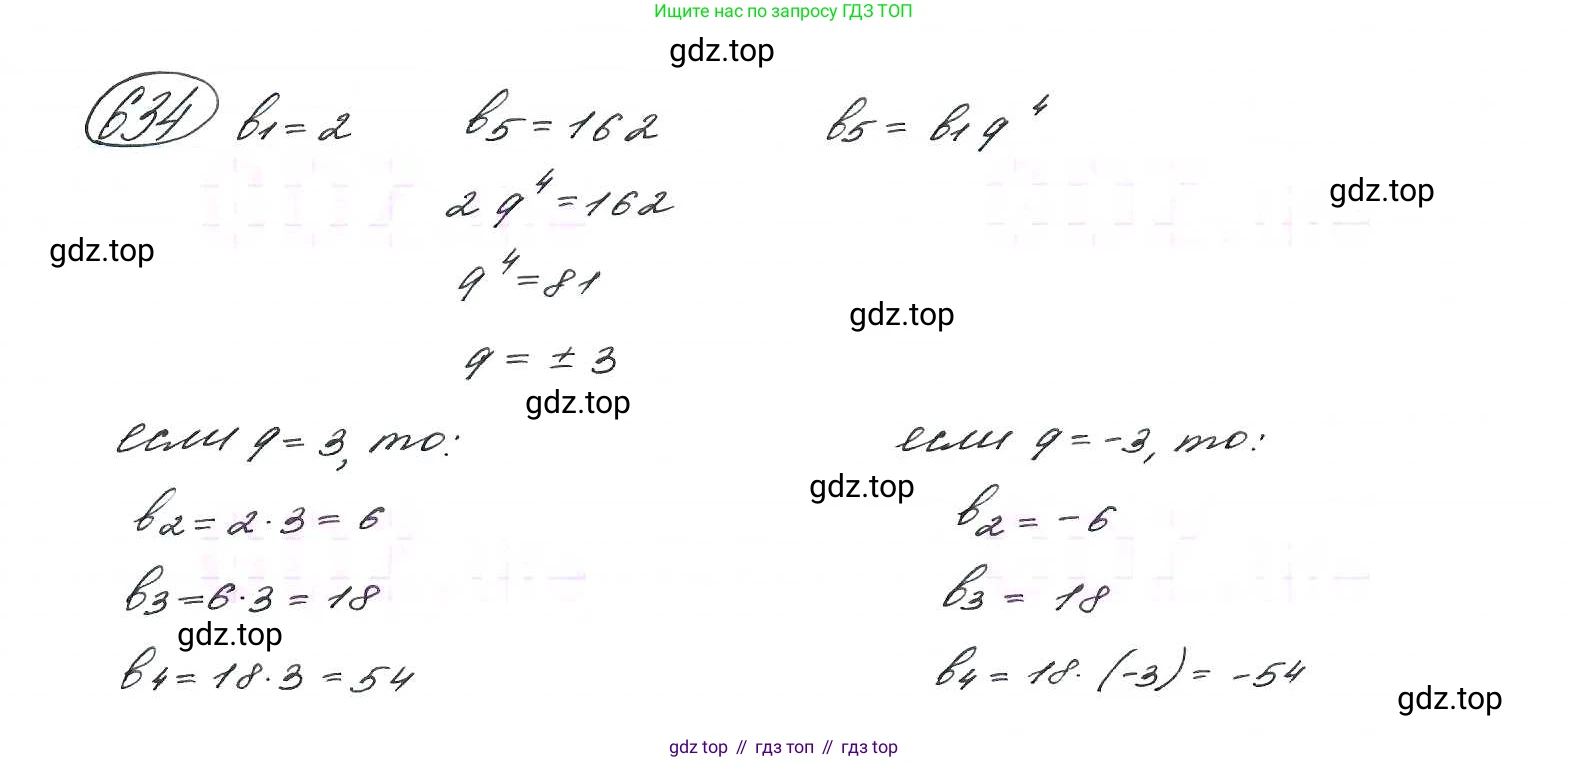 Ищите нас по запросу ГДЗ ТОП
gdz.top
634 b₁ = 2 b₅ = 162 b₅ = b₁q⁴
2q⁴ = 162
gdz.top
gdz.top
q⁴ = 81
gdz.top
q = ± 3
gdz.top
если q = 3, то: если q = -3, то:
gdz.top
b₂ = 2 · 3 = 6 b₂ = -6
b₃ = 6 · 3 = 18 b₃ = 18
gdz.top
b₄ = 18 · 3 = 54 b₄ = 18 · (-3) = -54
gdz.top
gdz top // гдз топ // гдз top